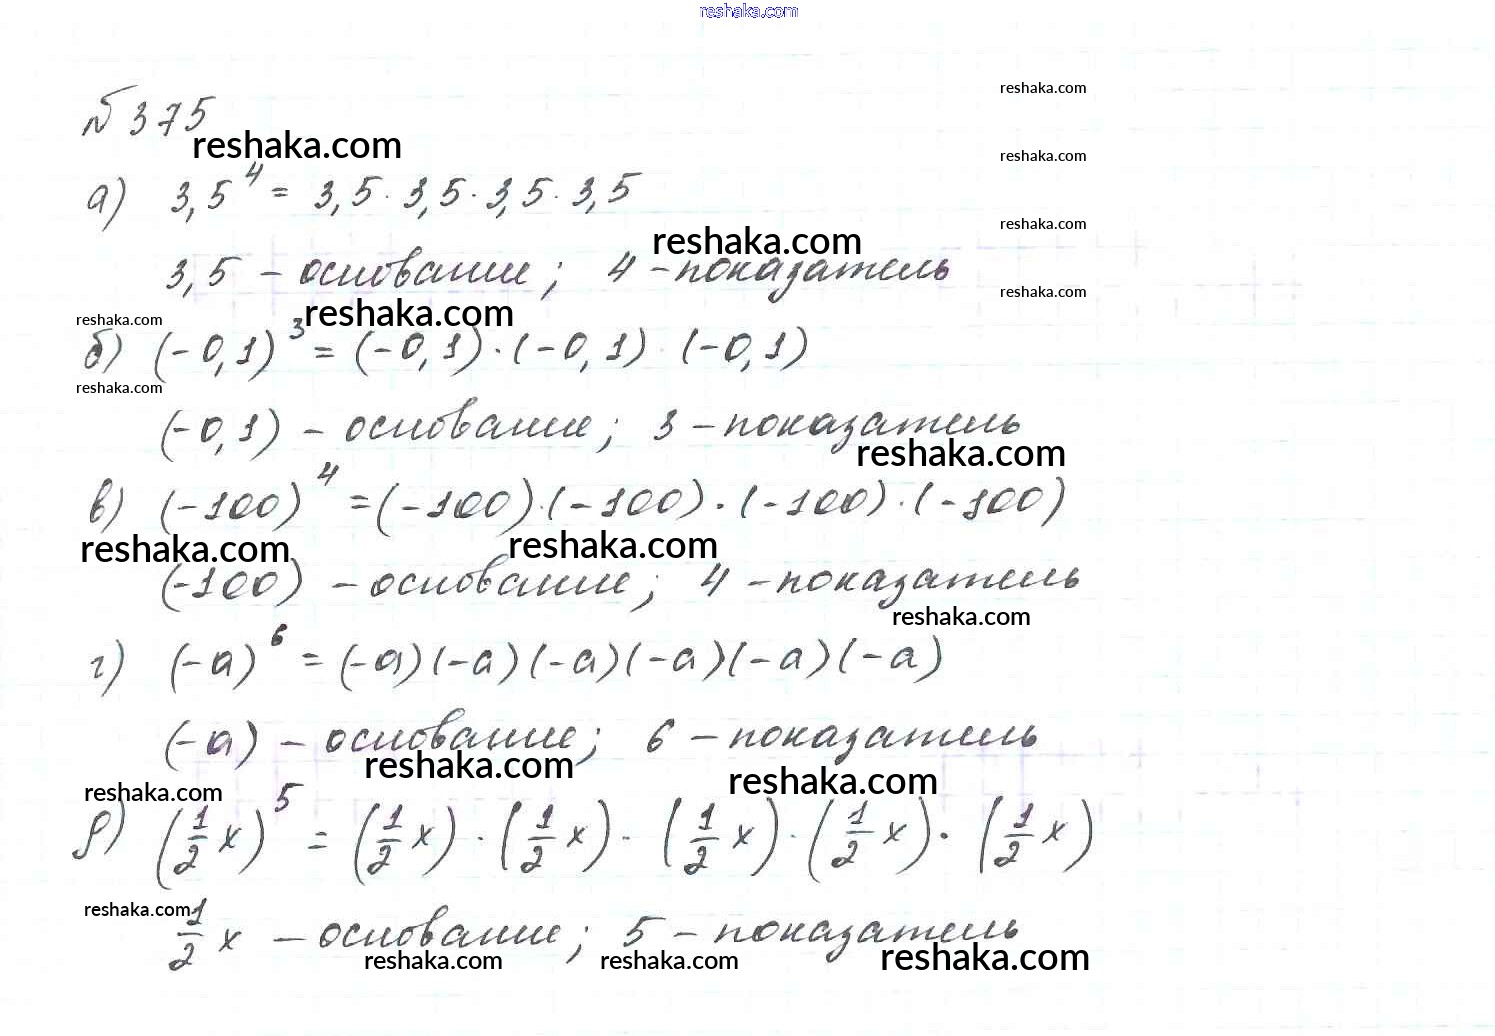 reshaka.com
№ 375
reshaka.com
reshaka.com
reshaka.com
а) 3,5⁴ = 3,5 · 3,5 · 3,5 · 3,5
reshaka.com
reshaka.com
3,5 – основание; 4 – показатель
reshaka.com
reshaka.com
reshaka.com
б) (-0,1)³ = (-0,1) · (-0,1) · (-0,1)
reshaka.com
(-0,1) – основание; 3 – показатель
reshaka.com
в) (-100)⁴ = (-100) · (-100) · (-100) · (-100)
reshaka.com
reshaka.com
(-100) – основание; 4 – показатель
reshaka.com
г) (-a)⁶ = (-a)(-a)(-a)(-a)(-a)(-a)
(-a) – основание; 6 – показатель
reshaka.com
reshaka.com
reshaka.com
д) (1/2 x)⁵ = (1/2 x) · (1/2 x) · (1/2 x) · (1/2 x) · (1/2 x)
reshaka.com
1/2 x – основание; 5 – показатель
reshaka.com
reshaka.com
reshaka.com